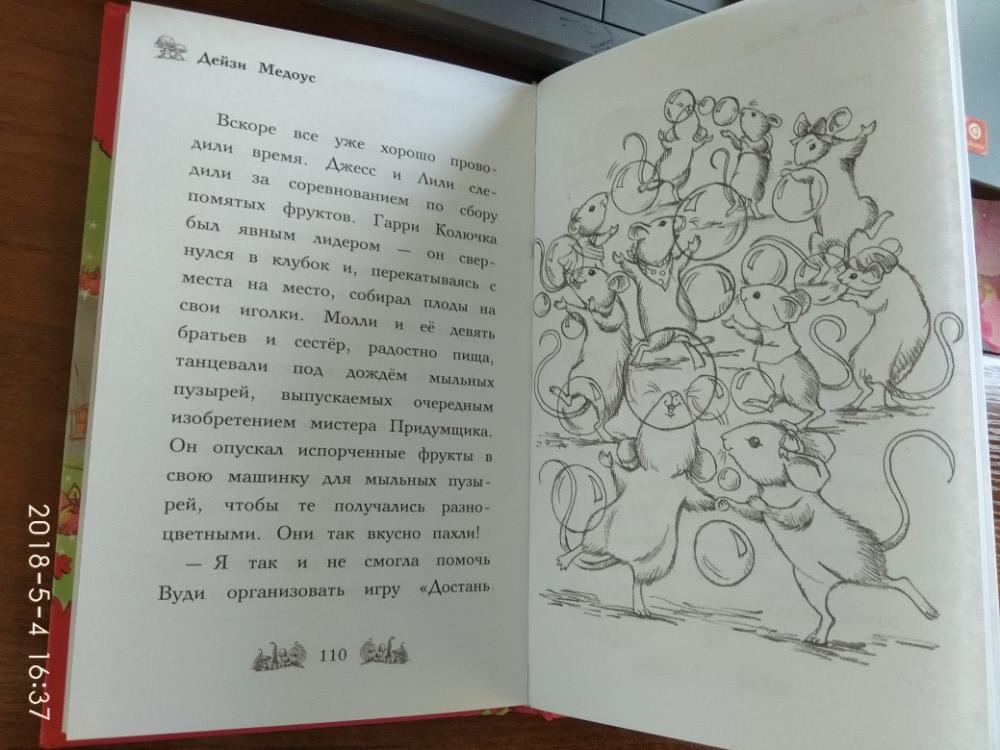 Дейзи Медоус
Вскоре все уже хорошо прово-
дили время. Джесс и Лили сле-
дили за соревнованием по сбору
помятых фруктов. Гарри Колючка
был явным лидером — он свер-
нулся в клубок и, перекатываясь с
места на место, собирал плоды на
свои иголки. Молли и её девять
братьев и сестёр, радостно пища,
танцевали под дождём мыльных
пузырей, выпускаемых очередным
изобретением мистера Придумщика.
Он опускал испорченные фрукты в
свою машинку для мыльных пузы-
рей, чтобы те получались разно-
цветными. Они так вкусно пахли!
— Я так и не смогла помочь
Вуди организовать игру «Достань
110
2018-5-4 16:37